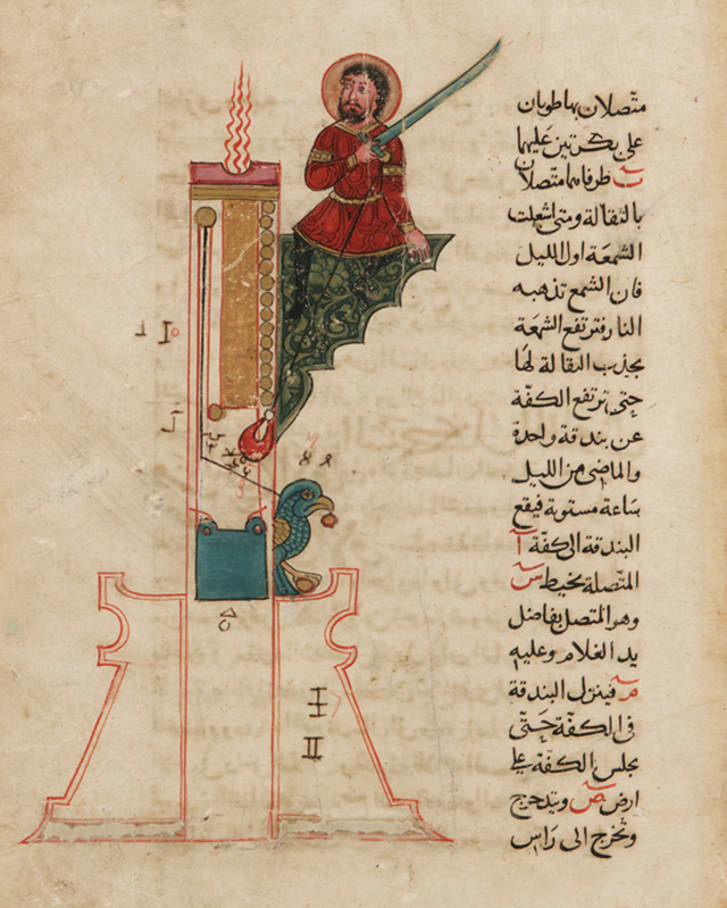 متصلان بها طوبان
على بكرتين عليهما
ت طرفاهما متصلان
بالثقالة ومتى اشعلت
الشمعة اول الليل
فان الشمع تذهبه
النار فترتفع الشمعة
بجذب الثقالة لها
حتى ترتفع الكفة
عن بندقة واحدة
والماضي من الليل
ساعة مستوية فيقع
البندقة الى كفة آ
المتصلة بخيط س
وهو المتصل بفاضل
يد الغلام وعليه
م فينزل البندقة
في الكفة حتى
يجلس الكفة على
ارض ص ويتدحرج
وتخرج الى راس